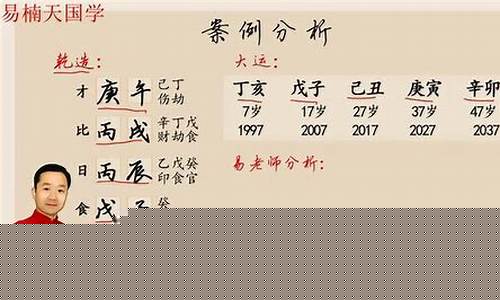 易楠天国学
案例分析
乾造：
大运：
才 庚 午 己丁
伤劫
比 丙 戌 辛丁戊
财劫食
日 丙 辰 乙戊癸
印食官
食 戊 子 癸
丁亥 戊子 己丑 庚寅 辛卯
7岁 17岁 27岁 37岁 47岁
1997 2007 2017 2027 2037
易老师分析：